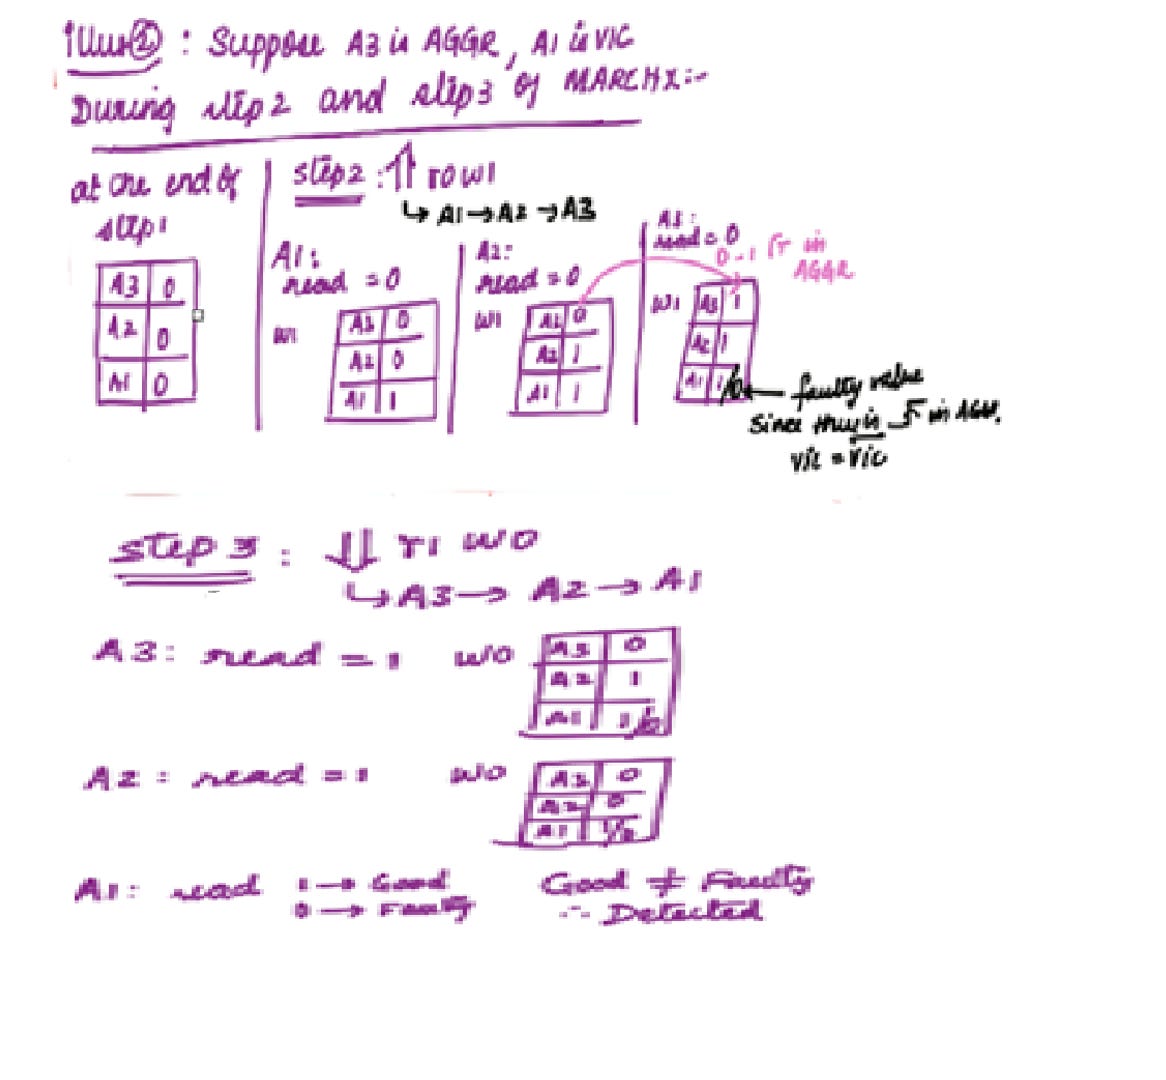 Illus② : Suppose A3 is AGGR, A1 is VIC
During step2 and step3 of MARCHX:-
at the end of
step1
A3 0
A2 0
A1 0
step2 : ⇑ r0w1
↳ A1 → A2 → A3
A1:
read = 0
W1
A3 0
A2 0
A1 1
A2:
read = 0
W1
A3 0
A2 1
A1 1
A3:
read = 0
0-1 in
AGGR
W1
A3 1
A2 1
A1 1/0 ← faulty value
Since there is in AGGR.
Vic = V̅i̅c̅
step 3 : ⇓ r1 w0
↳ A3 → A2 → A1
A3: read = 1 w0
A3 0
A2 1
A1 1/0
A2 : read = 1 w0
A3 0
A2 0
A1 1/0
A1: read 1 → Good Good ≠ Faulty
0 → Faulty ∴ Detected